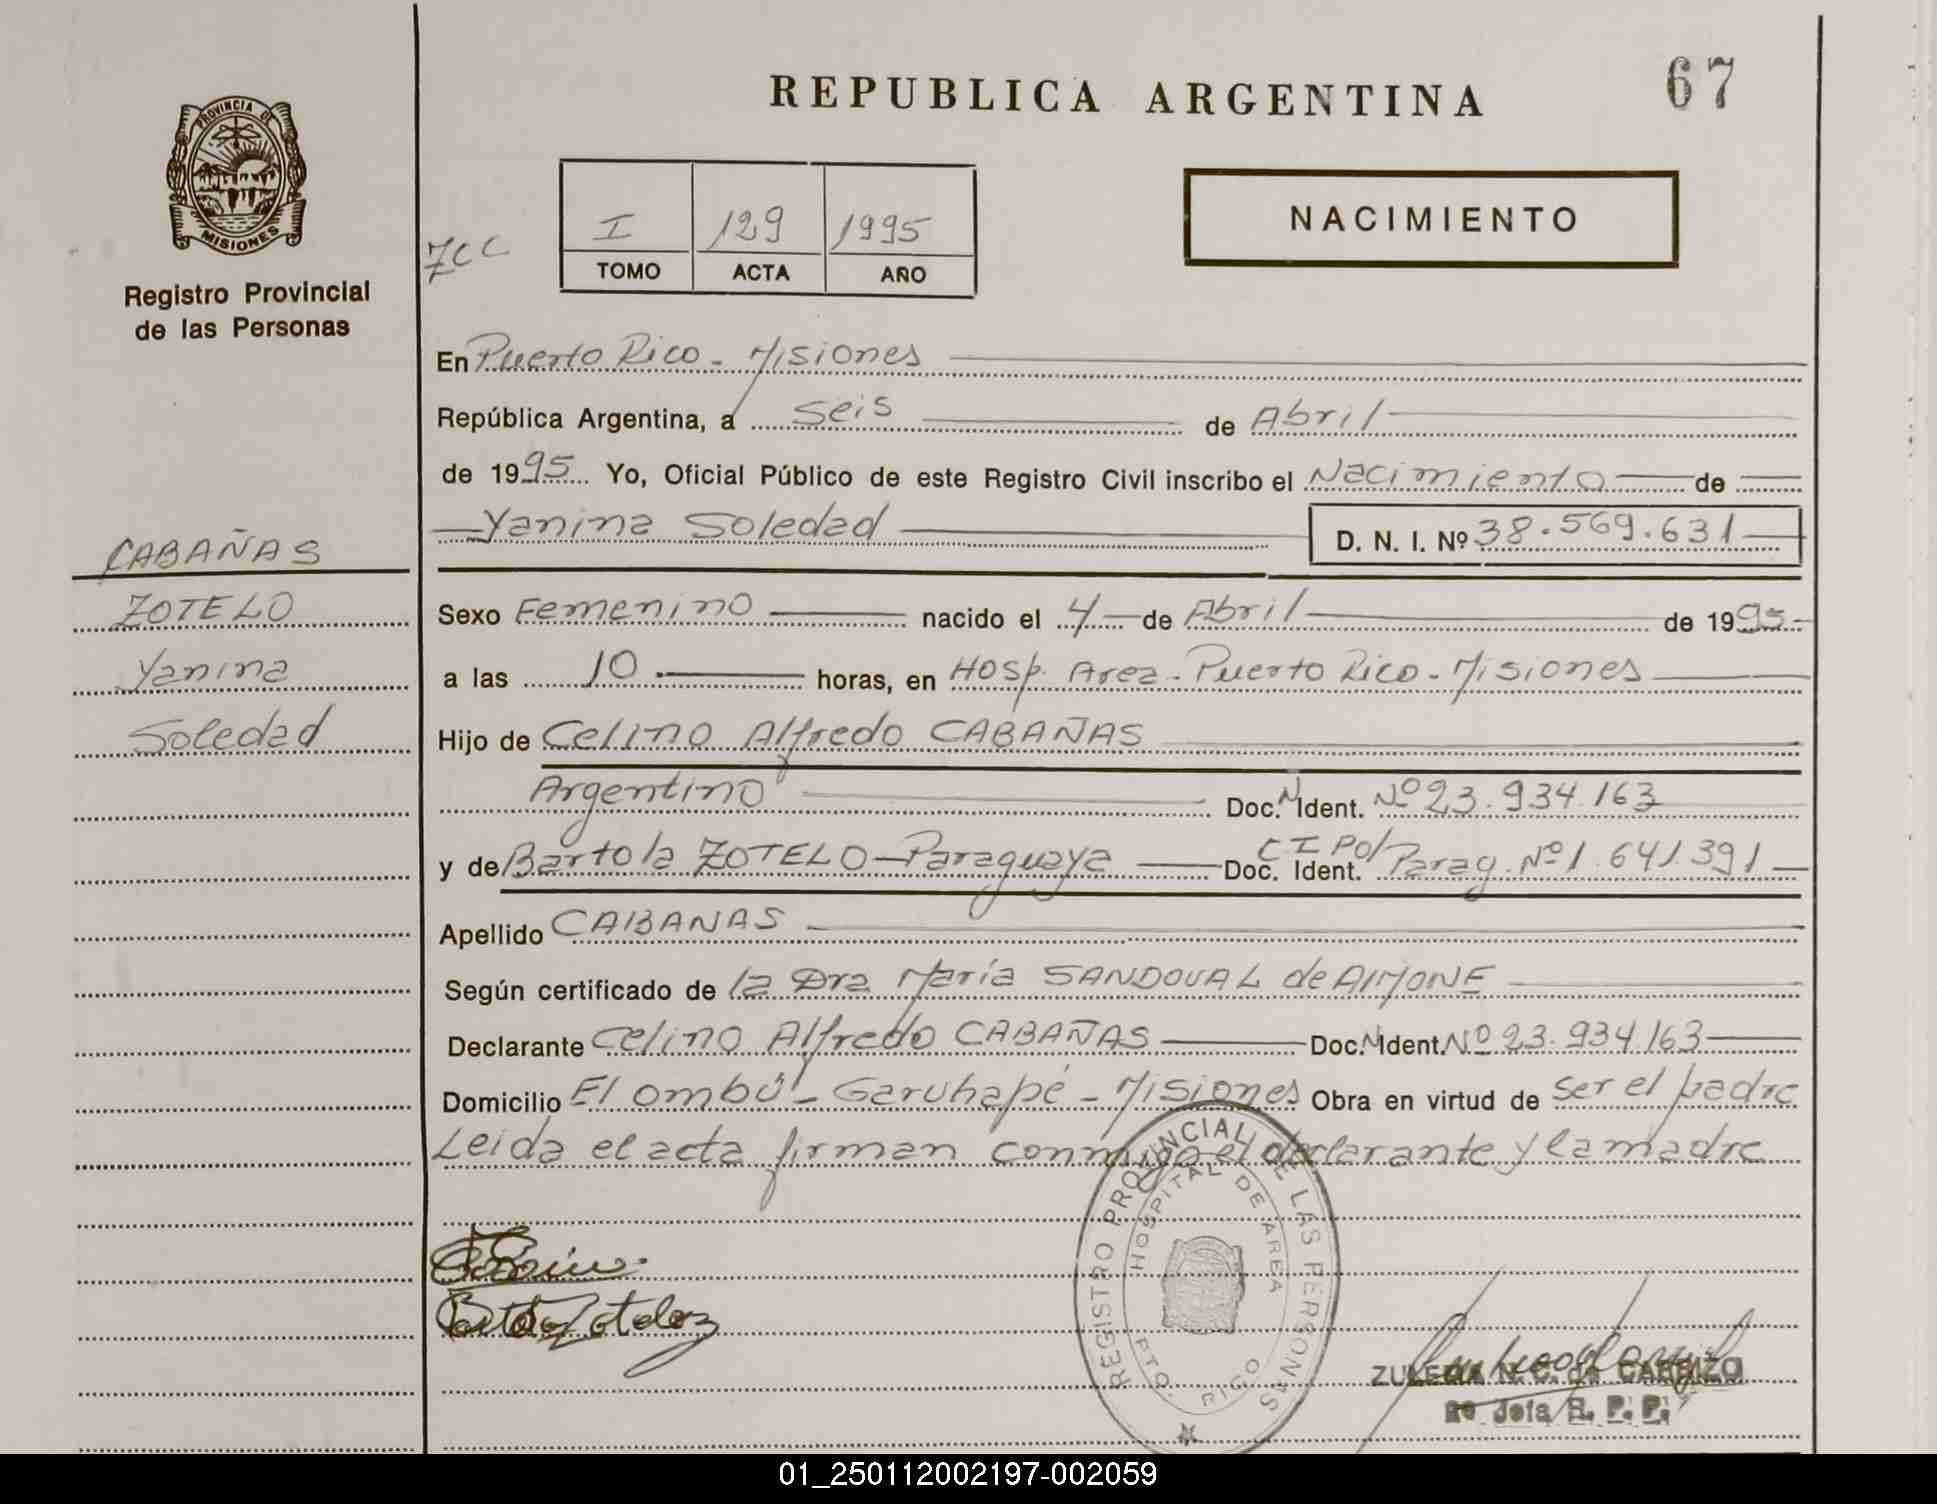 REPUBLICA ARGENTINA
67
PROVINCIA DE
MISIONES
Registro Provincial
de las Personas
ZCC
I 129 1995
TOMO ACTA AÑO
NACIMIENTO
En Puerto Rico - Misiones
República Argentina, a seis de Abril
de 1995 Yo, Oficial Público de este Registro Civil inscribo el Nacimiento de
Yanina Soledad D. N. I. Nº 38.569.631
CABAÑAS
ZOTELO
Yanina
Soledad
Sexo Femenino nacido el 4 de Abril de 1995
a las 10 horas, en Hosp. Area - Puerto Rico - Misiones
Hijo de Celino Alfredo CABAÑAS
Argentino Doc. N Ident. Nº 23.934.163
y de Bartola ZOTELO - Paraguaya Doc. Ident. C I Pol Parag. Nº 1.641.391
Apellido CABAÑAS
Según certificado de la Dra María SANDOVAL de AIMONE
Declarante Celino Alfredo CABAÑAS Doc. N Ident. Nº 23.934.163
Domicilio El ombú - Garuhapé - Misiones Obra en virtud de ser el padre
Leida el acta firman conmigo el declarante y la madre
REGISTRO PROVINCIAL DE LAS PERSONAS
HOSPITAL DE AREA
PTO. RICO
N. C. de CABRIZO
R. P. P.
01_250112002197-002059